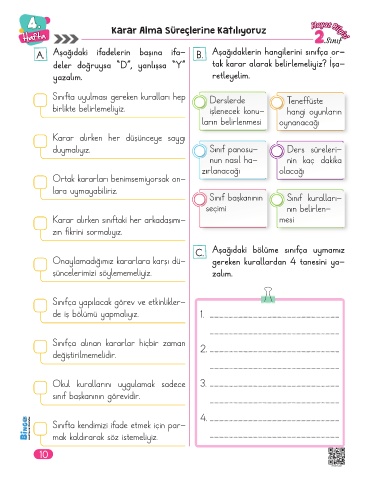 4.
Hafta
Karar Alma Süreçlerine Katılıyoruz
Hayat Bilgisi
2.Sınıf
A. Aşağıdaki ifadelerin başına ifa-
deler doğruysa "D", yanlışsa "Y"
yazalım.
Sınıfta uyulması gereken kuralları hep
birlikte belirlemeliyiz.
Karar alırken her düşünceye saygı
duymalıyız.
Ortak kararları benimsemiyorsak on-
lara uymayabiliriz.
Karar alırken sınıftaki her arkadaşımı-
zın fikrini sormalıyız.
Onaylamadığımız kararlara karşı dü-
şüncelerimizi söylememeliyiz.
Sınıfça yapılacak görev ve etkinlikler-
de iş bölümü yapmalıyız.
Sınıfça alınan kararlar hiçbir zaman
değiştirilmemelidir.
Okul kurallarını uygulamak sadece
sınıf başkanının görevidir.
Sınıfta kendimizi ifade etmek için par-
mak kaldırarak söz istemeliyiz.
B. Aşağıdakilerin hangilerini sınıfça or-
tak karar alarak belirlemeliyiz? İşa-
retleyelim.
Derslerde
işlenecek konu-
ların belirlenmesi
Teneffüste
hangi oyunların
oynanacağı
Sınıf panosu-
nun nasıl ha-
zırlanacağı
Ders süreleri-
nin kaç dakika
olacağı
Sınıf başkanının
seçimi
Sınıf kuralları-
nın belirlen-
mesi
C. Aşağıdaki bölüme sınıfça uymamız
gereken kurallardan 4 tanesini ya-
zalım.
1.
2.
3.
4.
10